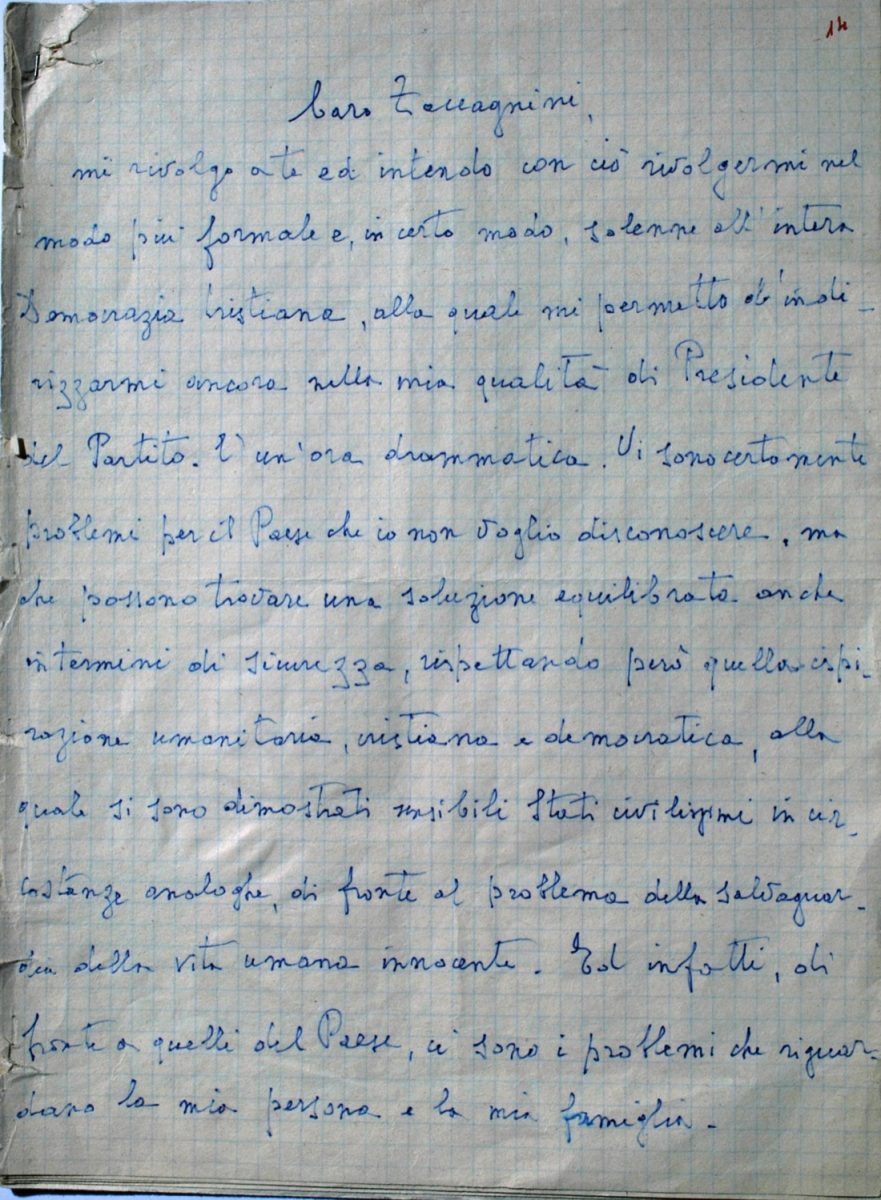 14
Caro Zaccagnini,
mi rivolgo a te ed intendo con ciò rivolgermi nel
modo più formale e, in certo modo, solenne all'intera
Democrazia Cristiana, alla quale mi permetto d'indi-
rizzarmi ancora nella mia qualità di Presidente
del Partito. E' un'ora drammatica. Vi sono certamente
problemi per il Paese che io non voglio disconoscere, ma
che possono trovare una soluzione equilibrata anche
in termini di sicurezza, rispettando però quella ispi-
razione umanitaria, cristiana e democratica, alla
quale si sono dimostrati sensibili Stati civilissimi in cir-
costanze analoghe, di fronte al problema della salvaguar-
dia della vita umana innocente. Ed infatti, di
fronte a quelli del Paese, ci sono i problemi che riguar-
dano la mia persona e la mia famiglia.